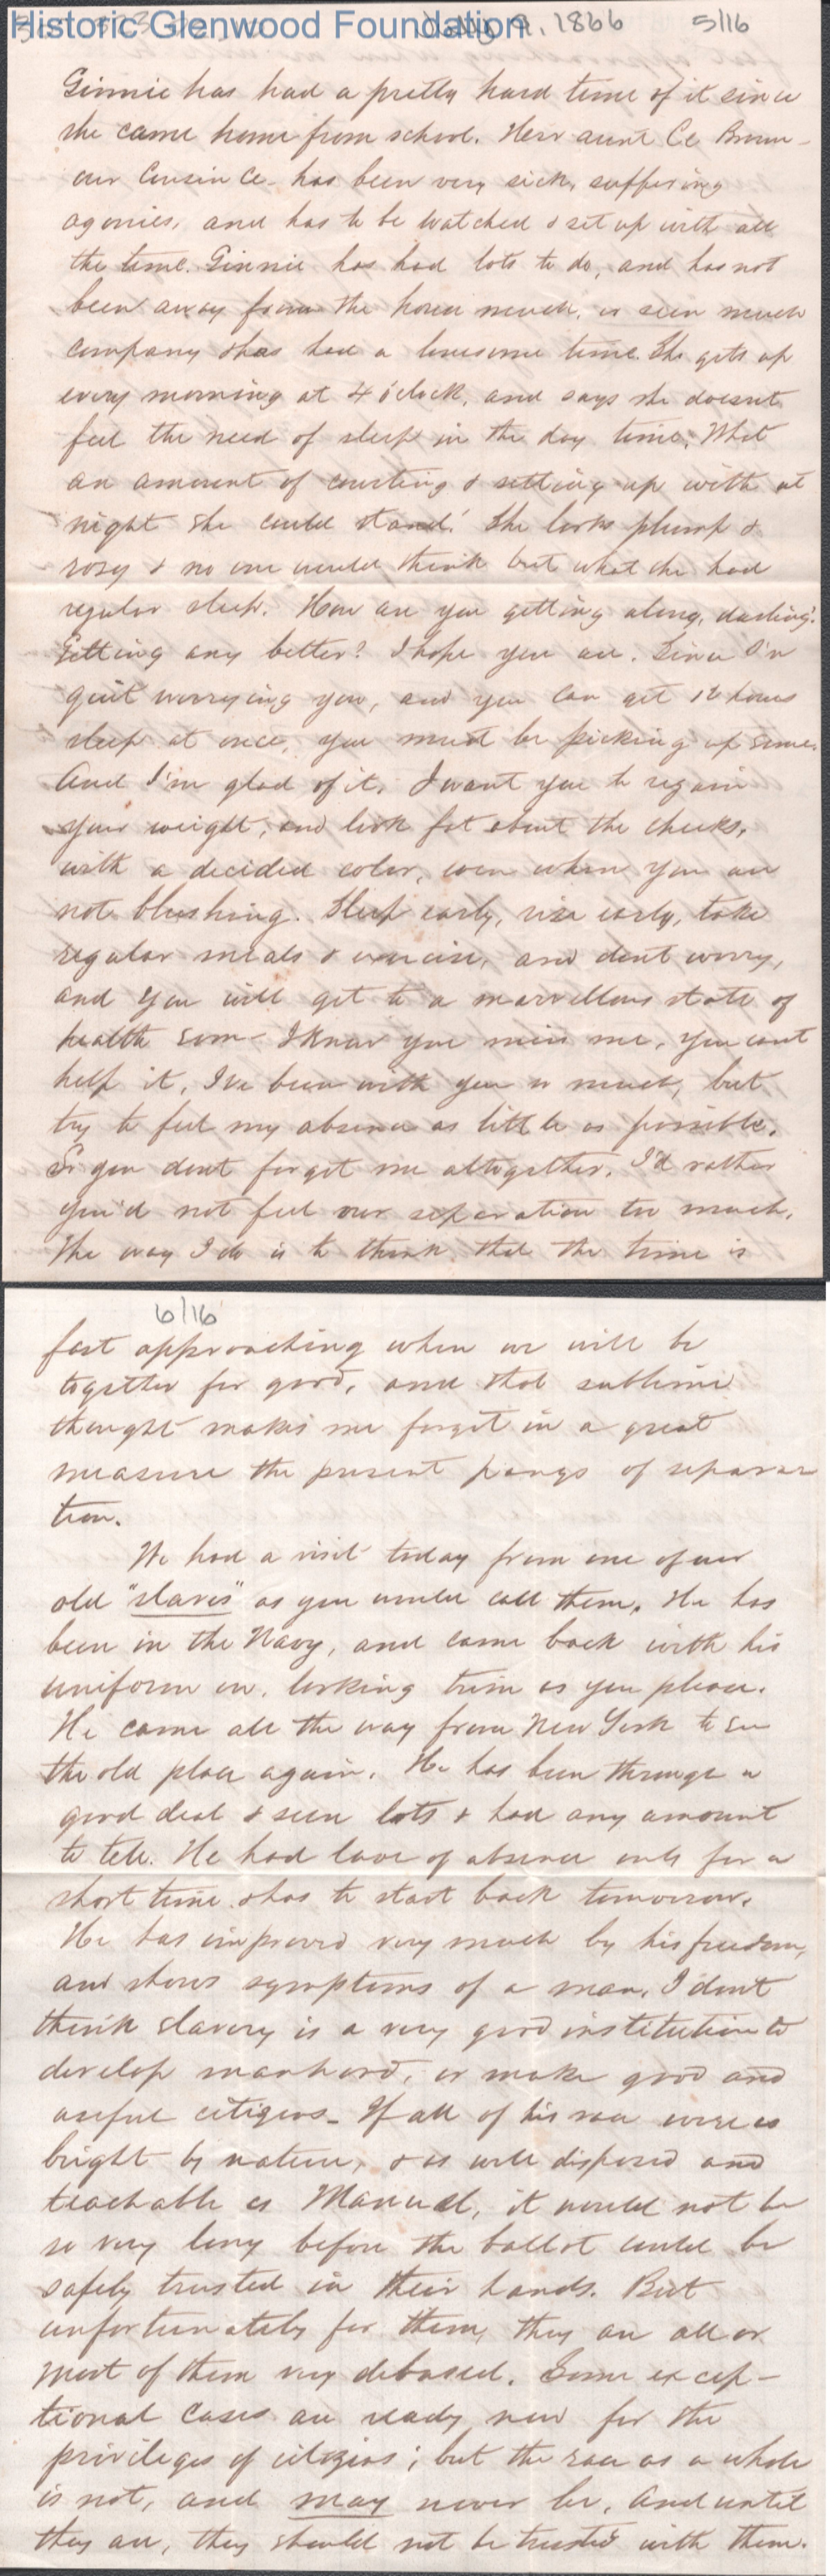 Historic Glenwood Foundation
July 9, 1866 5/16
Ginnie has had a pretty hard time of it since
she came home from school. Her aunt Ce Brown -
our Cousin Ce - has been very sick, suffering
agonies, and has to be watched & set up with all
the time. Ginnie has had lots to do, and has not
been away from the house much, or seen much
company & has had a lonesome time. She gets up
every morning at 4 o'clock, and says she doesnt
feel the need of sleep in the day time. What
an amount of courting & setting up with at
night she could stand! She looks plump &
rosy & no one would think but what she had
regular sleep. How are you getting along, darling?
Getting any better? I hope you are. Since I'v
quit worrying you, and you can get 12 hours
sleep at once, you must be picking up some.
And I'm glad of it. I want you to regain
your weight, and look fat about the cheeks,
with a decided color, even when you are
not blushing. Sleep early, rise early, take
regular meals & exercise, and dont worry,
and you will get to a marvellous state of
health soon - I know you miss me, you cant
help it, I've been with you so much, but
try to feel my absence as little as possible.
So you dont forget me altogether, I'd rather
you'd not feel our separation too much.
The way I do is to think that the time is
6/16
fast approaching when we will be
together for good, and that sublime
thought makes me forget in a great
measure the present pangs of separa-
tion.
We had a visit today from one of our
old "slaves" as you would call them. He has
been in the Navy, and came back with his
uniform on, looking trim as you please.
He came all the way from New York to see
the old place again. He has been through a
good deal & seen lots & had any amount
to tell. He had leave of absence only for a
short time & has to start back tomorrow.
He has improved very much by his freedom,
and shows symptoms of a man. I dont
think slavery is a very good institution to
develop manhood, or make good and
useful citizens - If all of his race were as
bright by nature, & as well disposed and
teachable as Manuel, it would not be
so very long before the ballot could be
safely trusted in their hands. But
unfortunately for them, they are all or
most of them very debased. Some excep-
tional cases are ready now for the
privileges of citizens; but the race as a whole
is not, and may never be, and until
they are, they should not be trusted with them.